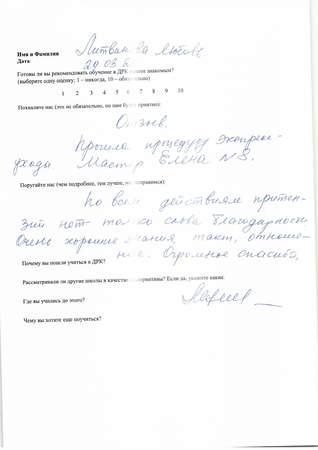 Имя и Фамилия Литвинова Любовь
Дата: 20.03.
Готовы ли вы рекомендовать обучение в ДРК знакомым?
(выберите одну оценку; 1 – никогда, 10 –
1 2 3 4 5 6 7 8 9 10
Похвалите нас (это не обязательно, но нам будет приятно):
Отзыв.
Прошла процедуру экспресс-
ухода Мастер Елена №8.
Поругайте нас (чем подробнее, тем лучше,
По всем действиям притен-
зий нет – только слова благодарности
Очень хорошие знания, такт, отноше-
ние. Огромное спасибо,
Почему вы пошли учиться в ДРК?
Рассматривали ли другие школы в качестве альтернативы? Если да, укажите какие.
Где вы учились до этого?
Чему вы хотите еще поучиться?